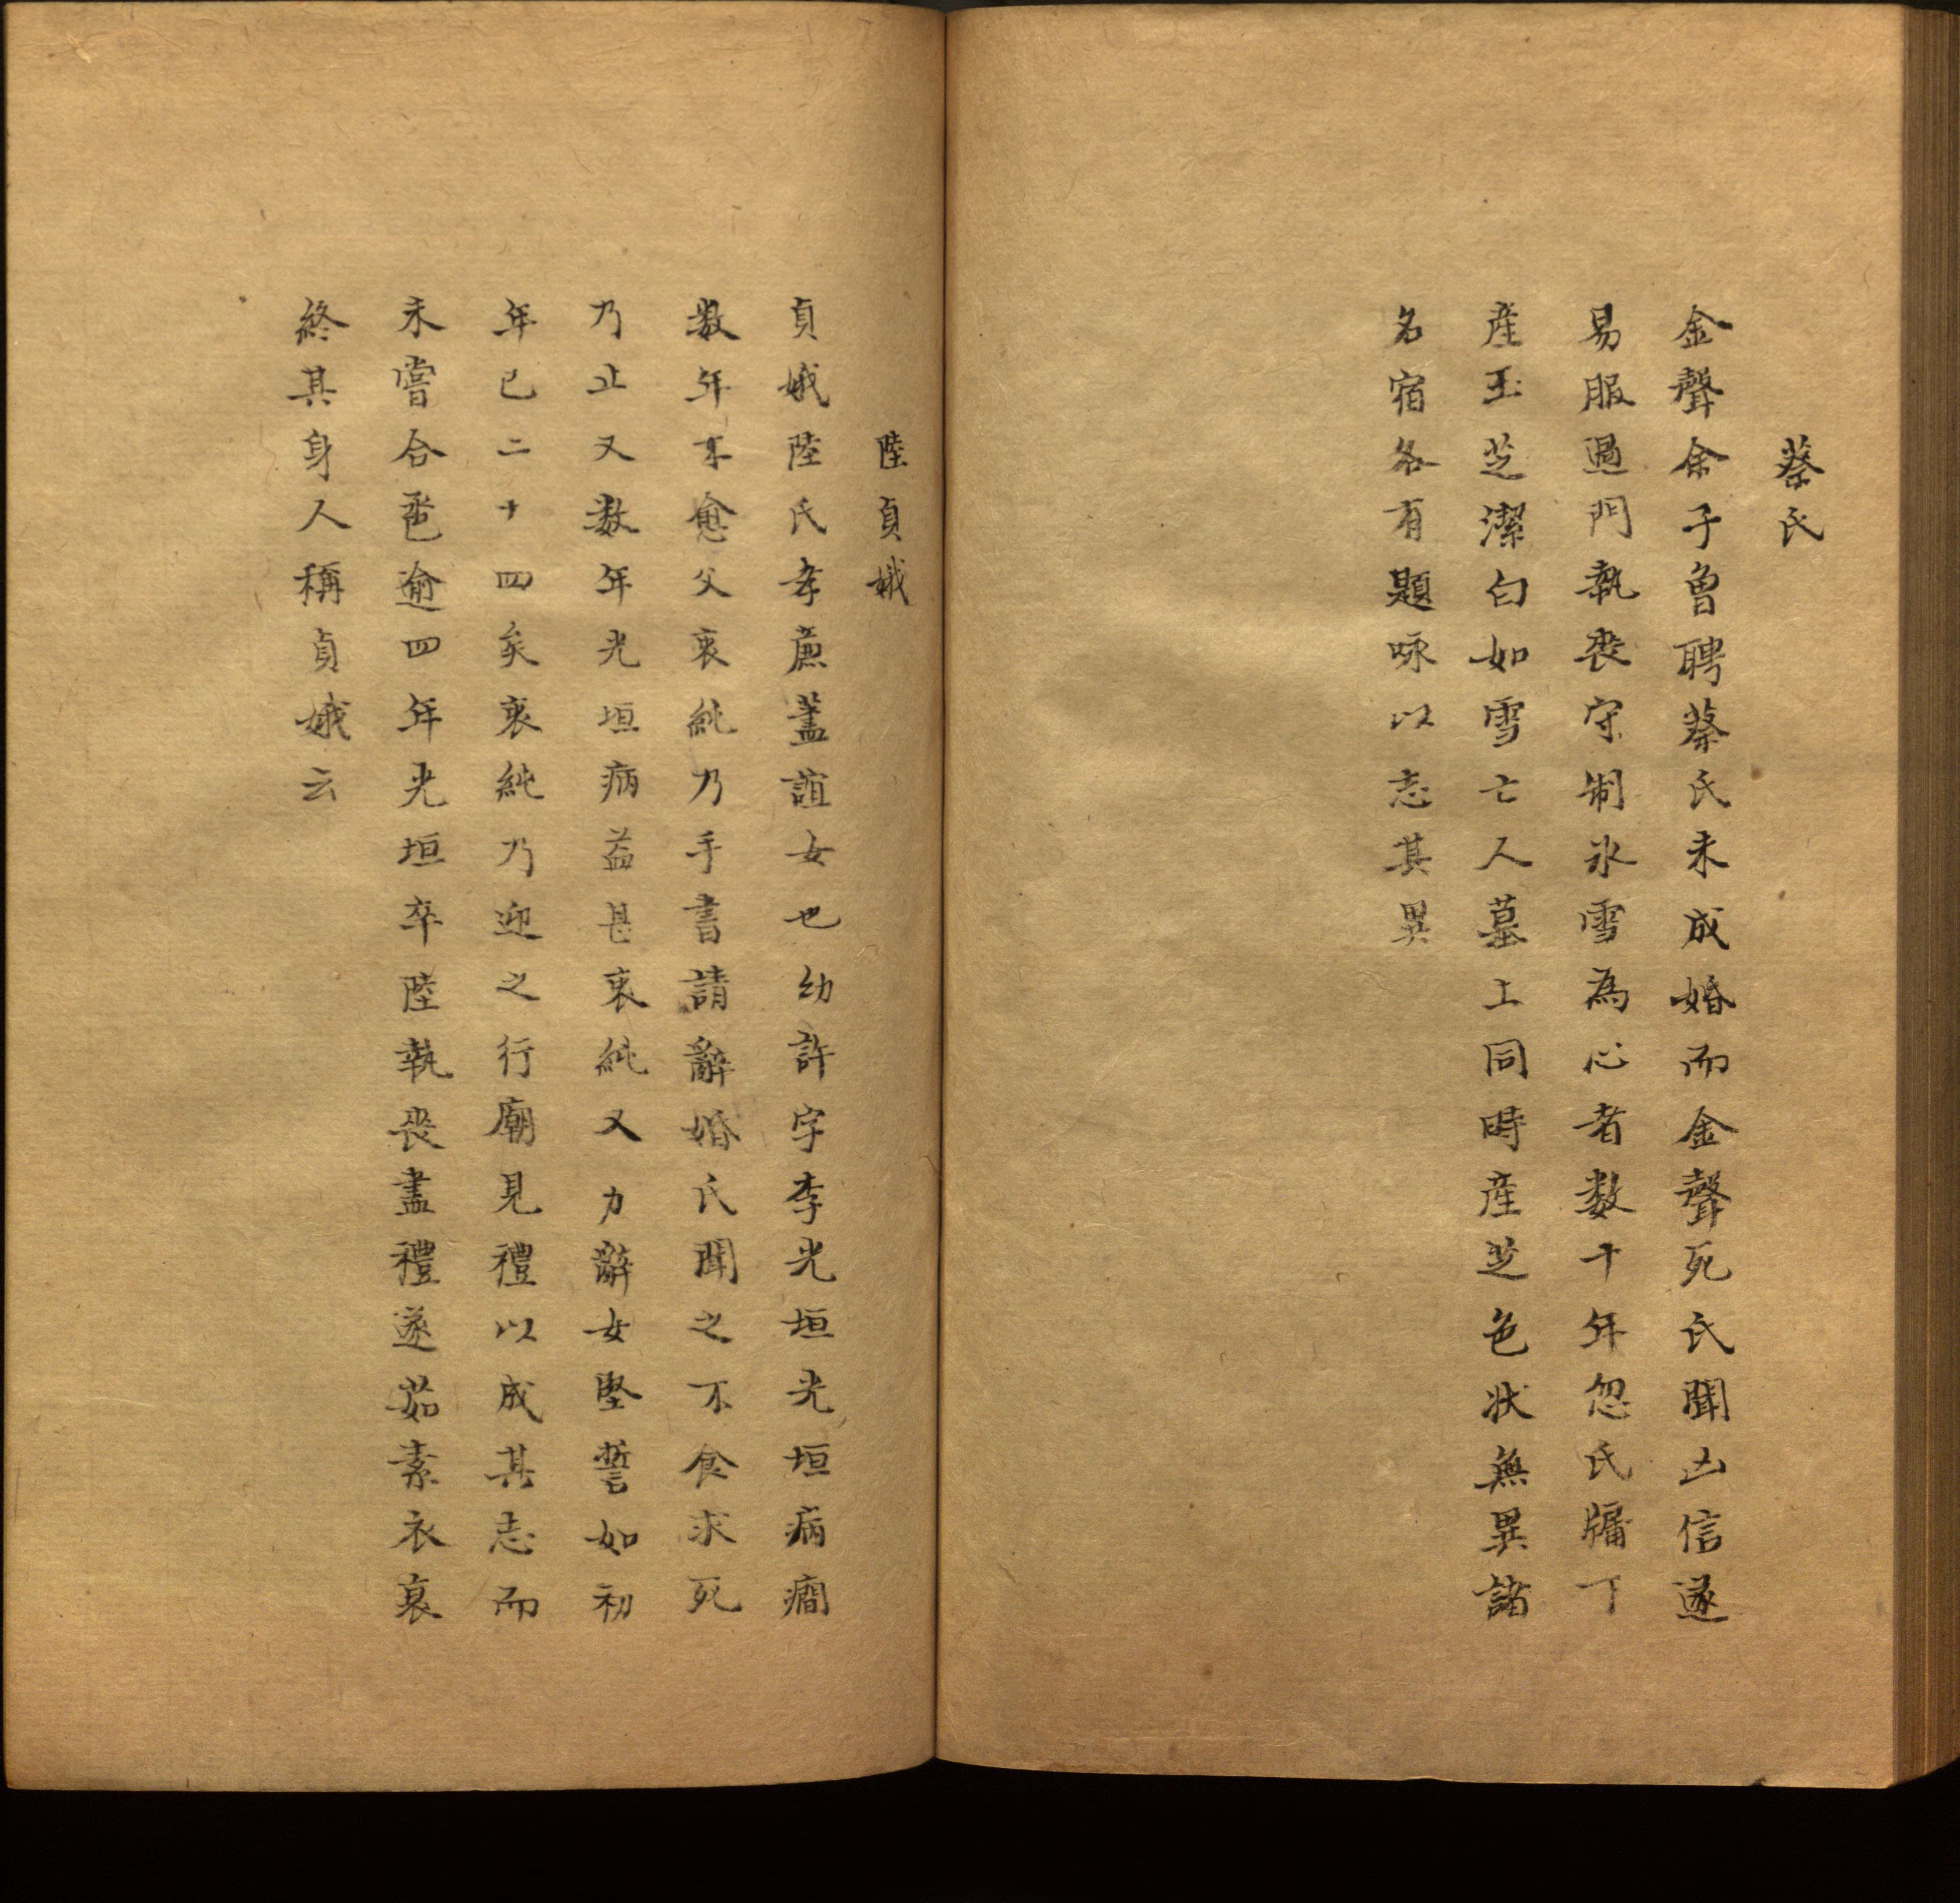 蔡氏
金聲余子曾聘蔡氏未成婚而金聲死氏聞凶信遂
易服過門執喪守制氷雪為心者数十年忽氏牖下
產玉芝潔白如雪亡人墓上同時産芝色状無異諸
名宿各有題咏以志其異
陸貞娥
貞娥陸氏孝廉蓋誼女也幼許字李光垣光垣病癎
数年不愈父衷純乃手書請辭婚氏聞之不食求死
乃止又数年光垣病益甚衷純又力辭女堅誓如初
年已二十四矣衷純乃迎之行廟見禮以成其志而
未嘗合卺逾四年光垣卒陸執喪盡禮遂茹素衣衰
終其身人稱貞娥云